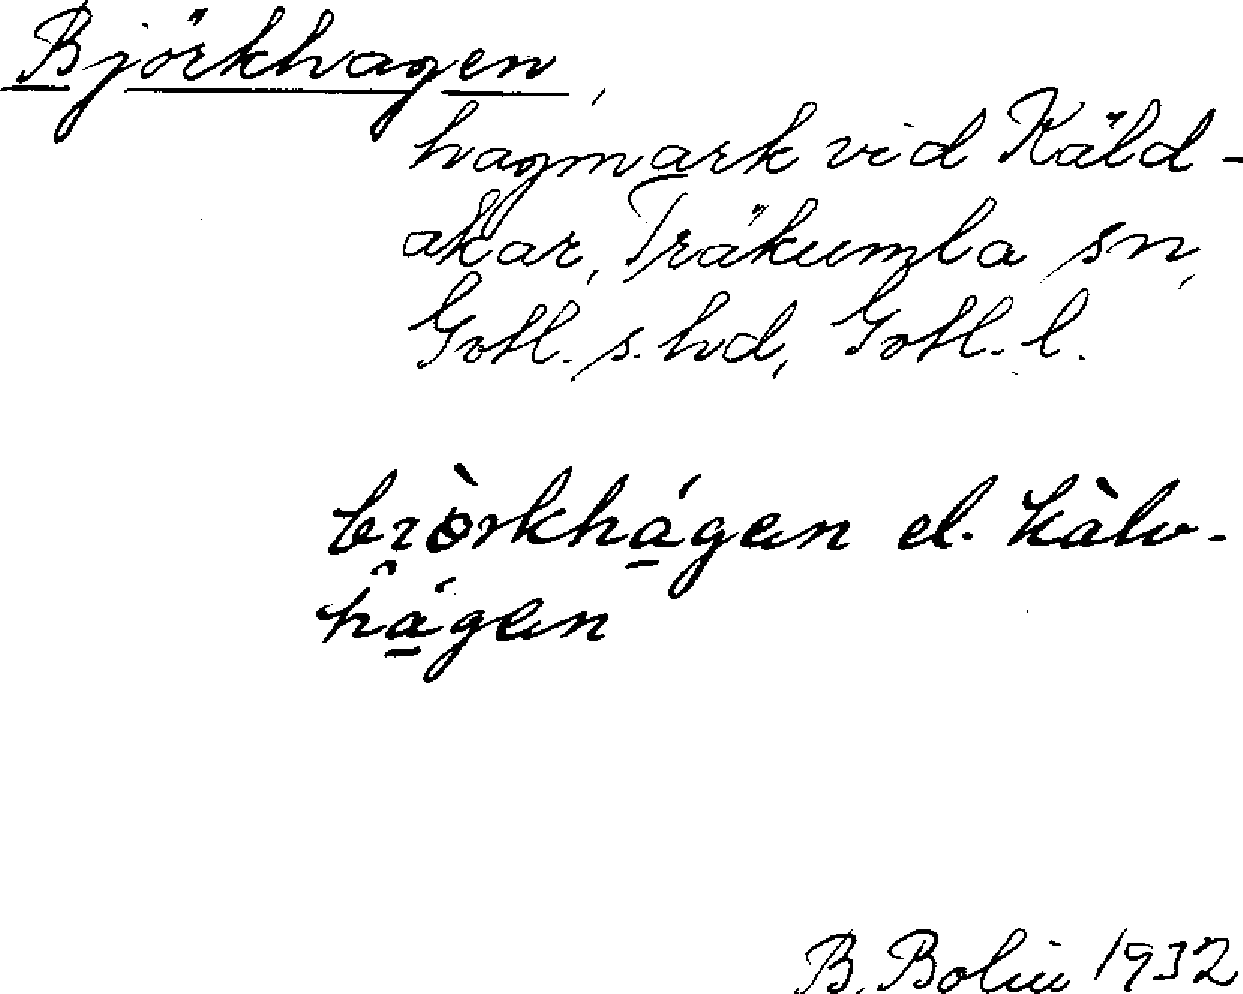 Björkhagen,
hagmark vid Käld-
åkar, Träkumla sn,
Gotl. s. hd, Gotl. l.
bɪòrkhá̱gen el. kàlv-
há̱gen
B. Bolin 1932